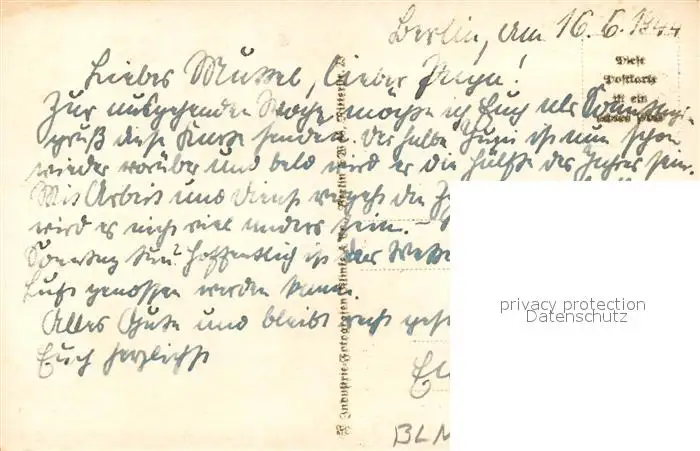 Berlin, am 16. 6. 1944
Liebes Muttel, lieber Papa!
Zur ausgehenden Woche möchte ich Euch als Sonntags-
gruß diese Karte senden. Der halbe Juni ist nun schon
wieder vorüber und bald wird es die Hälfte des Jahres sein.
Mit Arbeit und Dienst vergeht die
wird es nicht viel anders sein. –
Sonntag Hoffentlich ist das Wetter
Luft genossen werden kann.
Alles Gute und bleibt recht
Euch herzlichst
Diese
Postkarte
ist ein
Industrie-Fotografen Klinke & Co. Berlin W
BLN
privacy protection
Datenschutz